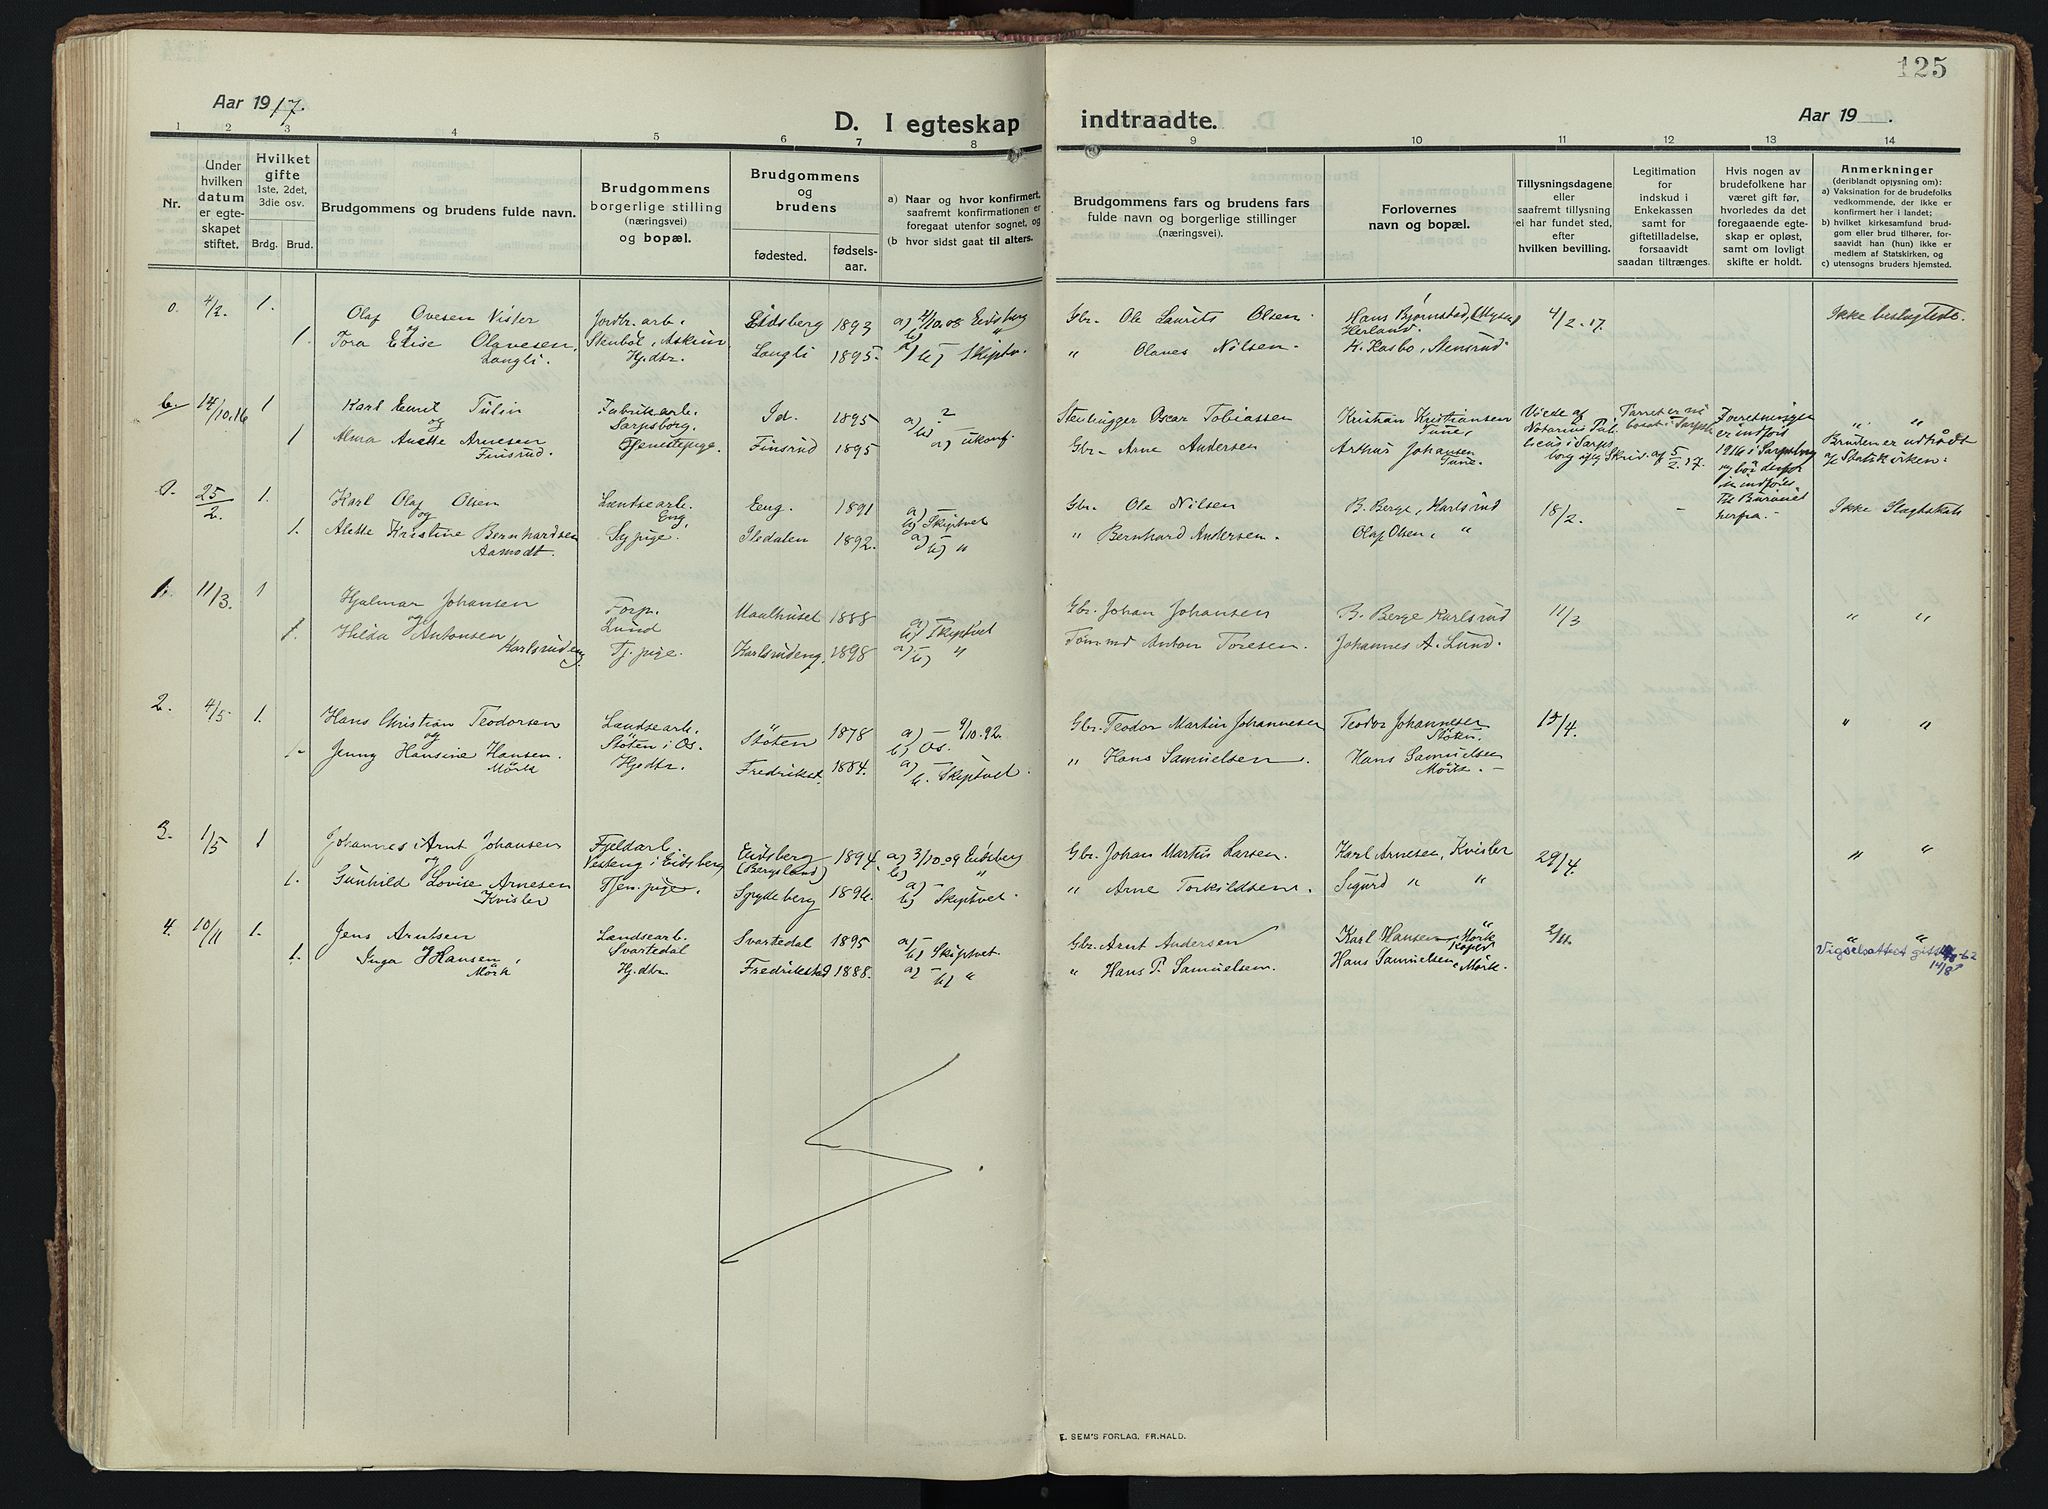 125
Aar 1917.
D. I egteskap indtraadte.
Aar 19 .
1 2 3 4 5 6 7 8 9 10 11 12 13 14
Nr.
Under hvilken datum er egteskapet stiftet.
Hvilket gifte 1ste, 2det, 3die osv.
Brdg. Brud.
Brudgommens og brudens fulde navn.
Brudgommens borgerlige stilling (næringsvei) og bopæl.
Brudgommens og brudens
fødested.
fødselsaar.
a) Naar og hvor konfirmert, saafremt konfirmationen er foregaat utenfor sognet, og
(b hvor sidst gaat til alters.
Brudgommens fars og brudens fars fulde navn og borgerlige stillinger (næringsvei).
Forlovernes navn og bopæl.
Tillysningsdagene eller saafremt tillysning ei har fundet sted, efter hvilken bevilling.
Legitimation for indskud i Enkekassen samt for giftetilladelse, forsaavidt saadan tiltrænges.
Hvis nogen av brudefolkene har været gift før, hvorledes da det foregaaende egteskap er opløst, samt om lovligt skifte er holdt.
Anmerkninger (deriblandt opjysning om):
a) Vaksination for de brudefolks vedkommende, der ikke er konfirmert her i landet;
b) hvilket kirkesamfund brudgom eller brud tilhører, forsaavidt han (hun) ikke er medlem af Statskirken, og
c) utensogns bruders hjemsted.
4/2. 1. Olaf Ovesen Vister Jordbr.arb. Eidsberg 1893 a) 4/10.08 Eidsberg Gbr. Ole Laurits Olsen. Hans Bjørnstad, 4/2.17. Ikke beslegtede.
og Stenbøl, Askim b) " Herland.
1. Tora Elise Olavesen, Langli. Hjdtr. Langli 1895. a) b) Skiptv. " Olaves Nilsen. K. Kasbo, Stensrud
14/10.16 1 Karl Emil Tulin Fabrikarb. Id. 1895 a) ? Stenhugger Oscar Tobiassen Kristian Kristiansen Viede af " "
og Sarpsborg. b) Tune, Notarius Publicus i Sarpsborg
1 Alma Anette Arnesen Finsrud. Tjenestepige. Finsrud 1895 a) ukonf. Gbr. Arne Andersen Arthur Johansen Tune. Skriv. af 5/2.17. Bruden er udtrådt af Statskirken.
25/2. 1. Karl Olaf Olsen Landsearb. Eng. 1891 a) – Gbr. Ole Nilsen B. Berge, Karlsrud 18/2. – herfra. – Ikke Slegtskab
og Eng. b) Skiptvet
1. Alette Kristine Bernhardsen Aamodt. Sypige. Iledalen 1892. a) – b) " " Bernhard Andersen. Olaf Olsen, "
1. 11/3. 1 Hjalmar Johansen Forp. Maalhuset 1888 a) – Gbr. Johan Johansen B. Berge Karlsrud 11/3 " "
og Lund b) Skiptvet
1. Hilda Antonsen Karlsrudeng. Tj.pige. Karlsrudeng. 1898 a) – b) " Tøm.md Anton Toresen. Johannes A. Lund.
2. 4/5. 1. Hans Christian Teodorsen Landsearb. Støten 1878 a) – 9/10.92. Gbr. Teodor Martin Johannesen Teodor Johannesen 15/4. " "
og Støten i Os. b) Os. Støten.
1. Jenny Hansine Hansen. Mörk Hjdtr. Fredrikst. 1884. a) – b. Skiptvet. " Hans Samuelsen. Hans Samuelsen Mörk. –
3. 1/5 1 Johannes Arnt Johansen Fjeldarb. Eidsberg 1894. a) 3/10.09 Eidsberg Gbr. Johan Martin Larsen. Karl Arnesen, Kvisler 29/4. " "
og Vesteng i Eidsberg (Bergsland) b) "
1. Gunhild Lovise Arnesen Kvisler Tjen.pige. Spydeberg 1896. a) – b) Skiptvet. " Arne Torkildsen. Sigurd " "
4. 10/11 1. Jens Arntsen Landsearb. Svartedal 1895 a) – Gbr. Arnt Andersen Karl Hansen Mörk 2/11. " "
og Svartedal b) Skiptvet.
1. Inga Hansen, Mörk Hjdtr. Fredrikstad 1888. a) – b) " " Hans P. Samuelsen. Hans Samuelsen, Mörk. Vigselsattest
E. SEM'S FORLAG, FR.HALD.